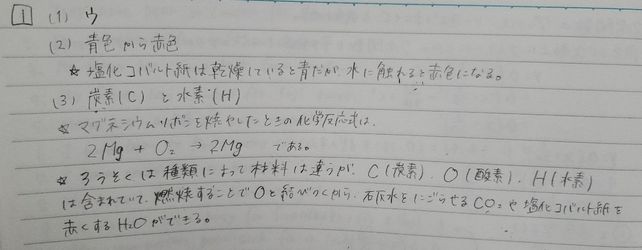 1 (1) ウ
(2) 青色から赤色
☆ 塩化コバルト紙は乾燥していると青だが、水に触れると赤色になる。
(3) 炭素(C) と 水素(H)
☆ マグネシウムリボンを燃やしたときの化学反応式は、
2Mg + O₂ → 2Mg である。
☆ ろうそくは種類によって材料は違うが、C(炭素)、O(酸素)、H(水素)
は含まれていて、燃焼することでOと結びつくから、石灰水をにごらせるCO₂や塩化コバルト紙を
赤くするH₂Oができる。